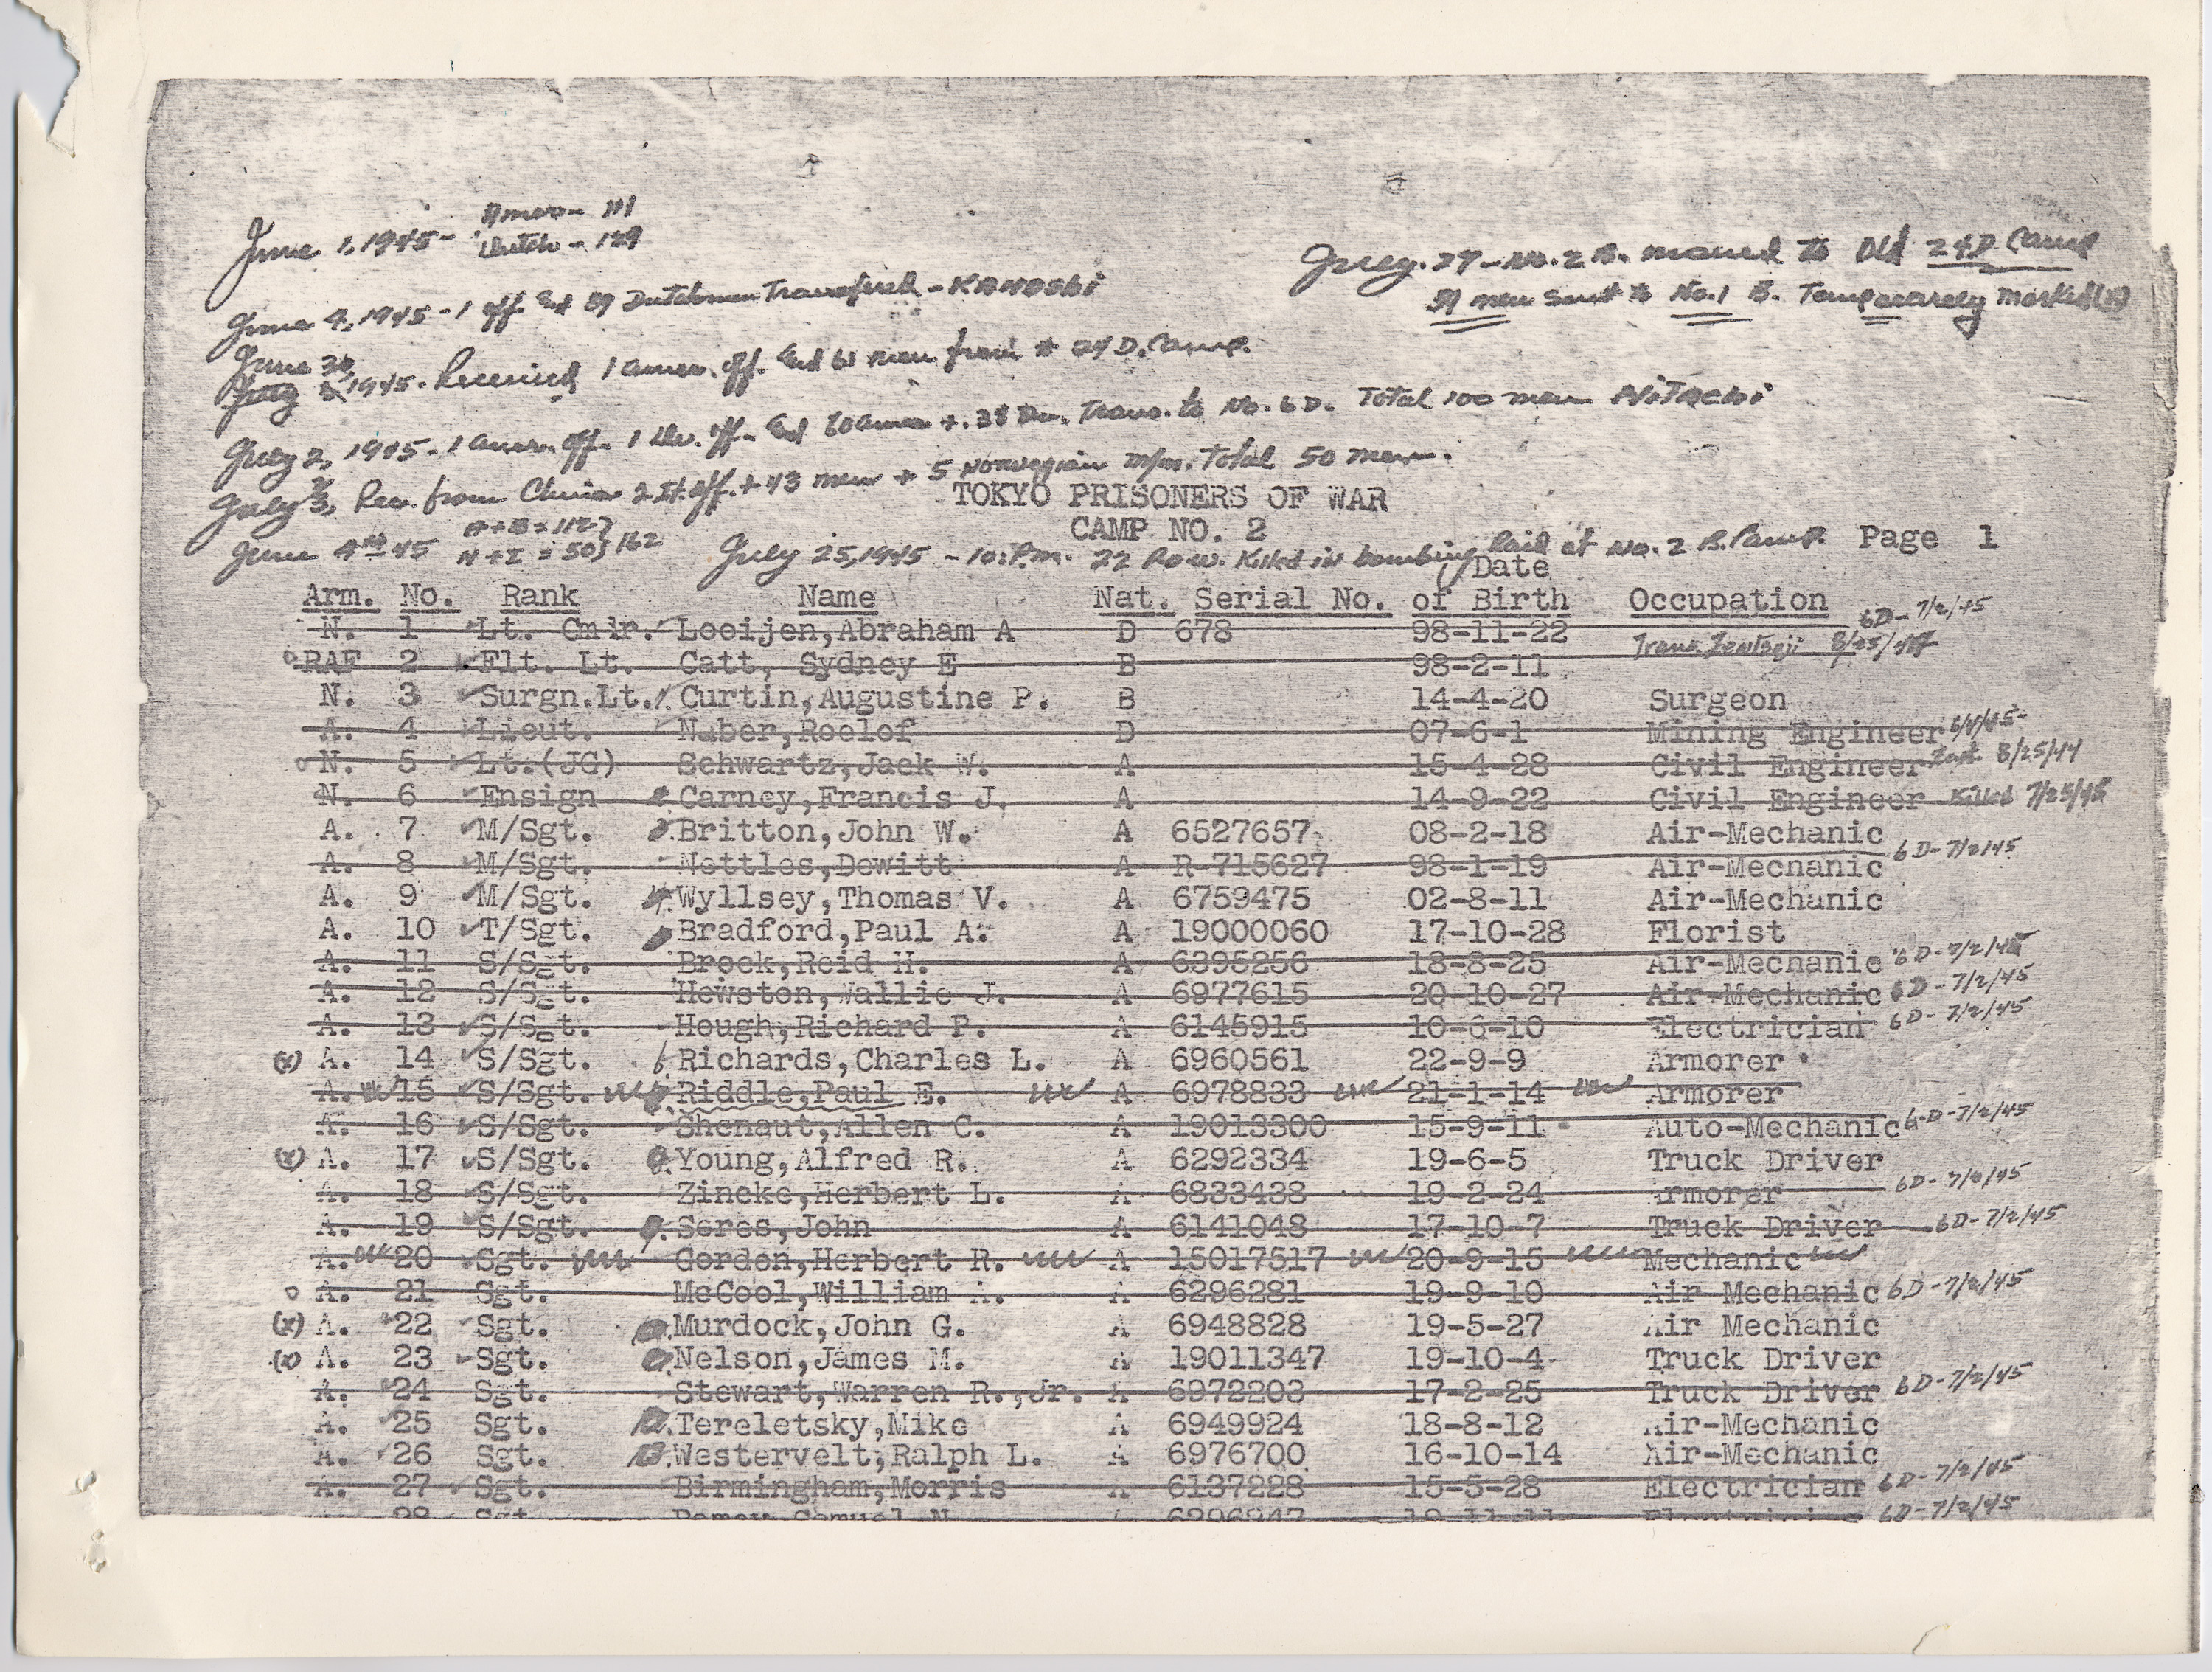 June 1, 1945 - Amer - 111
Dutch - 129
June 4, 1945 - 1 off. and 89 Dutchmen Transferred - KANOSHI
June 30
July 1945. Received 1 amer. off. and 61 men from # 24 D. Camp.
July 2, 1945 - 1 amer. off. 1 Du. off. and 60 amer +. 38 Du. Trans. to No. 6 D. Total 100 men HiTACHi
July 3, Rec. from China 2 off. + 43 men + 5 Norwegian m/m. Total 50 men.
June 4th 45 A + B = 112 } 162
N + I = 50
July. 27 - No. 2 B. moved to Old 24D Camp
men sent to No. 1 B. Temporarely marked (x)
TOKYO PRISONERS OF WAR
CAMP NO. 2
July 25, 1945 - 10: P.m. 22 P.o.w. Killed in bombing Raid at No. 2 B. Camp. Page 1
Arm. No. Rank Name Nat. Serial No. Date of Birth Occupation
N. 1 Lt. Cmdr. Looijen, Abraham A D 678 98-11-22 6D - 7/2/45
RAF 2 Flt. Lt. Catt, Sydney E B 98-2-11 Trans. Zentsuji 8/25/44
N. 3 Surgn.Lt. Curtin, Augustine P. B 14-4-20 Surgeon
A. 4 Lieut. Naber, Roelof D 07-6-1 Mining Engineer 6/4/45-
N. 5 Lt.(JG) Schwartz, Jack W. A 15-4-28 Civil Engineer Zent. 8/25/44
N. 6 Ensign 2. Carney, Francis J. A 14-9-22 Civil Engineer Killed 7/25/45
A. 7 M/Sgt. 3. Britton, John W. A 6527657 08-2-18 Air-Mechanic
A. 8 M/Sgt. Nettles, Dewitt A R-715627 98-1-19 Air-Mecnanic 6D - 7/2/45
A. 9 M/Sgt. 4. Wyllsey, Thomas V. A 6759475 02-8-11 Air-Mechanic
A. 10 T/Sgt. Bradford, Paul A. A 19000060 17-10-28 Florist
A. 11 S/Sgt. Brock, Reid H. A 6395256 18-8-25 Air-Mechanic 6D - 7/2/45
A. 12 S/Sgt. Hewston, Wallie J. A 6977615 20-10-27 Air-Mechanic 6D - 7/2/45
A. 13 S/Sgt. Hough, Richard P. A 6145915 10-6-10 Electrician 6D - 7/2/45
(x) A. 14 S/Sgt. 6 Richards, Charles L. A 6960561 22-9-9 Armorer
A. 15 S/Sgt. Riddle, Paul E. A 6978833 21-1-14 Armorer
A. 16 S/Sgt. Shenaut, Allen C. A 19013300 15-9-11 Auto-Mechanic 6-D - 7/2/45
(x) A. 17 S/Sgt. 8. Young, Alfred R. A 6292334 19-6-5 Truck Driver
A. 18 S/Sgt. Zincke, Herbert L. A 6833438 19-2-24 Armorer 6D - 7/2/45
A. 19 S/Sgt. 9. Seres, John A 6141048 17-10-7 Truck Driver 6D - 7/2/45
A. 20 Sgt. Gordon, Herbert R. A 15017517 20-9-15 Mechanic
A. 21 Sgt. McCool, William A. A 6296281 19-9-10 Air Mechanic 6D - 7/2/45
(x) A. 22 Sgt. Murdock, John G. A 6948828 19-5-27 Air Mechanic
(x) A. 23 Sgt. Nelson, James M. A 19011347 19-10-4 Truck Driver
A. 24 Sgt. Stewart, Warren R., Jr. A 6972203 17-2-25 Truck Driver 6D - 7/2/45
A. 25 Sgt. 12. Tereletsky, Mike A 6949924 18-8-12 Air-Mechanic
A. 26 Sgt. 13. Westervelt, Ralph L. A 6976700 16-10-14 Air-Mechanic
A. 27 Sgt. Birmingham, Morris A 6137228 15-5-28 Electrician 6D - 7/2/45
28 Sgt. Samuel N. 6D - 7/2/45